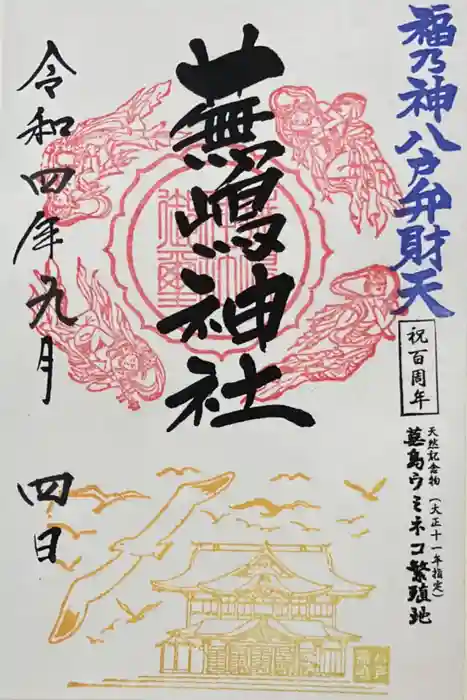 福乃神八戸弁財天
祝百周年
天然記念物(大正十一年指定)
蕪島ウミネコ繁殖地
蕪嶋神社
令和四年九月
四日